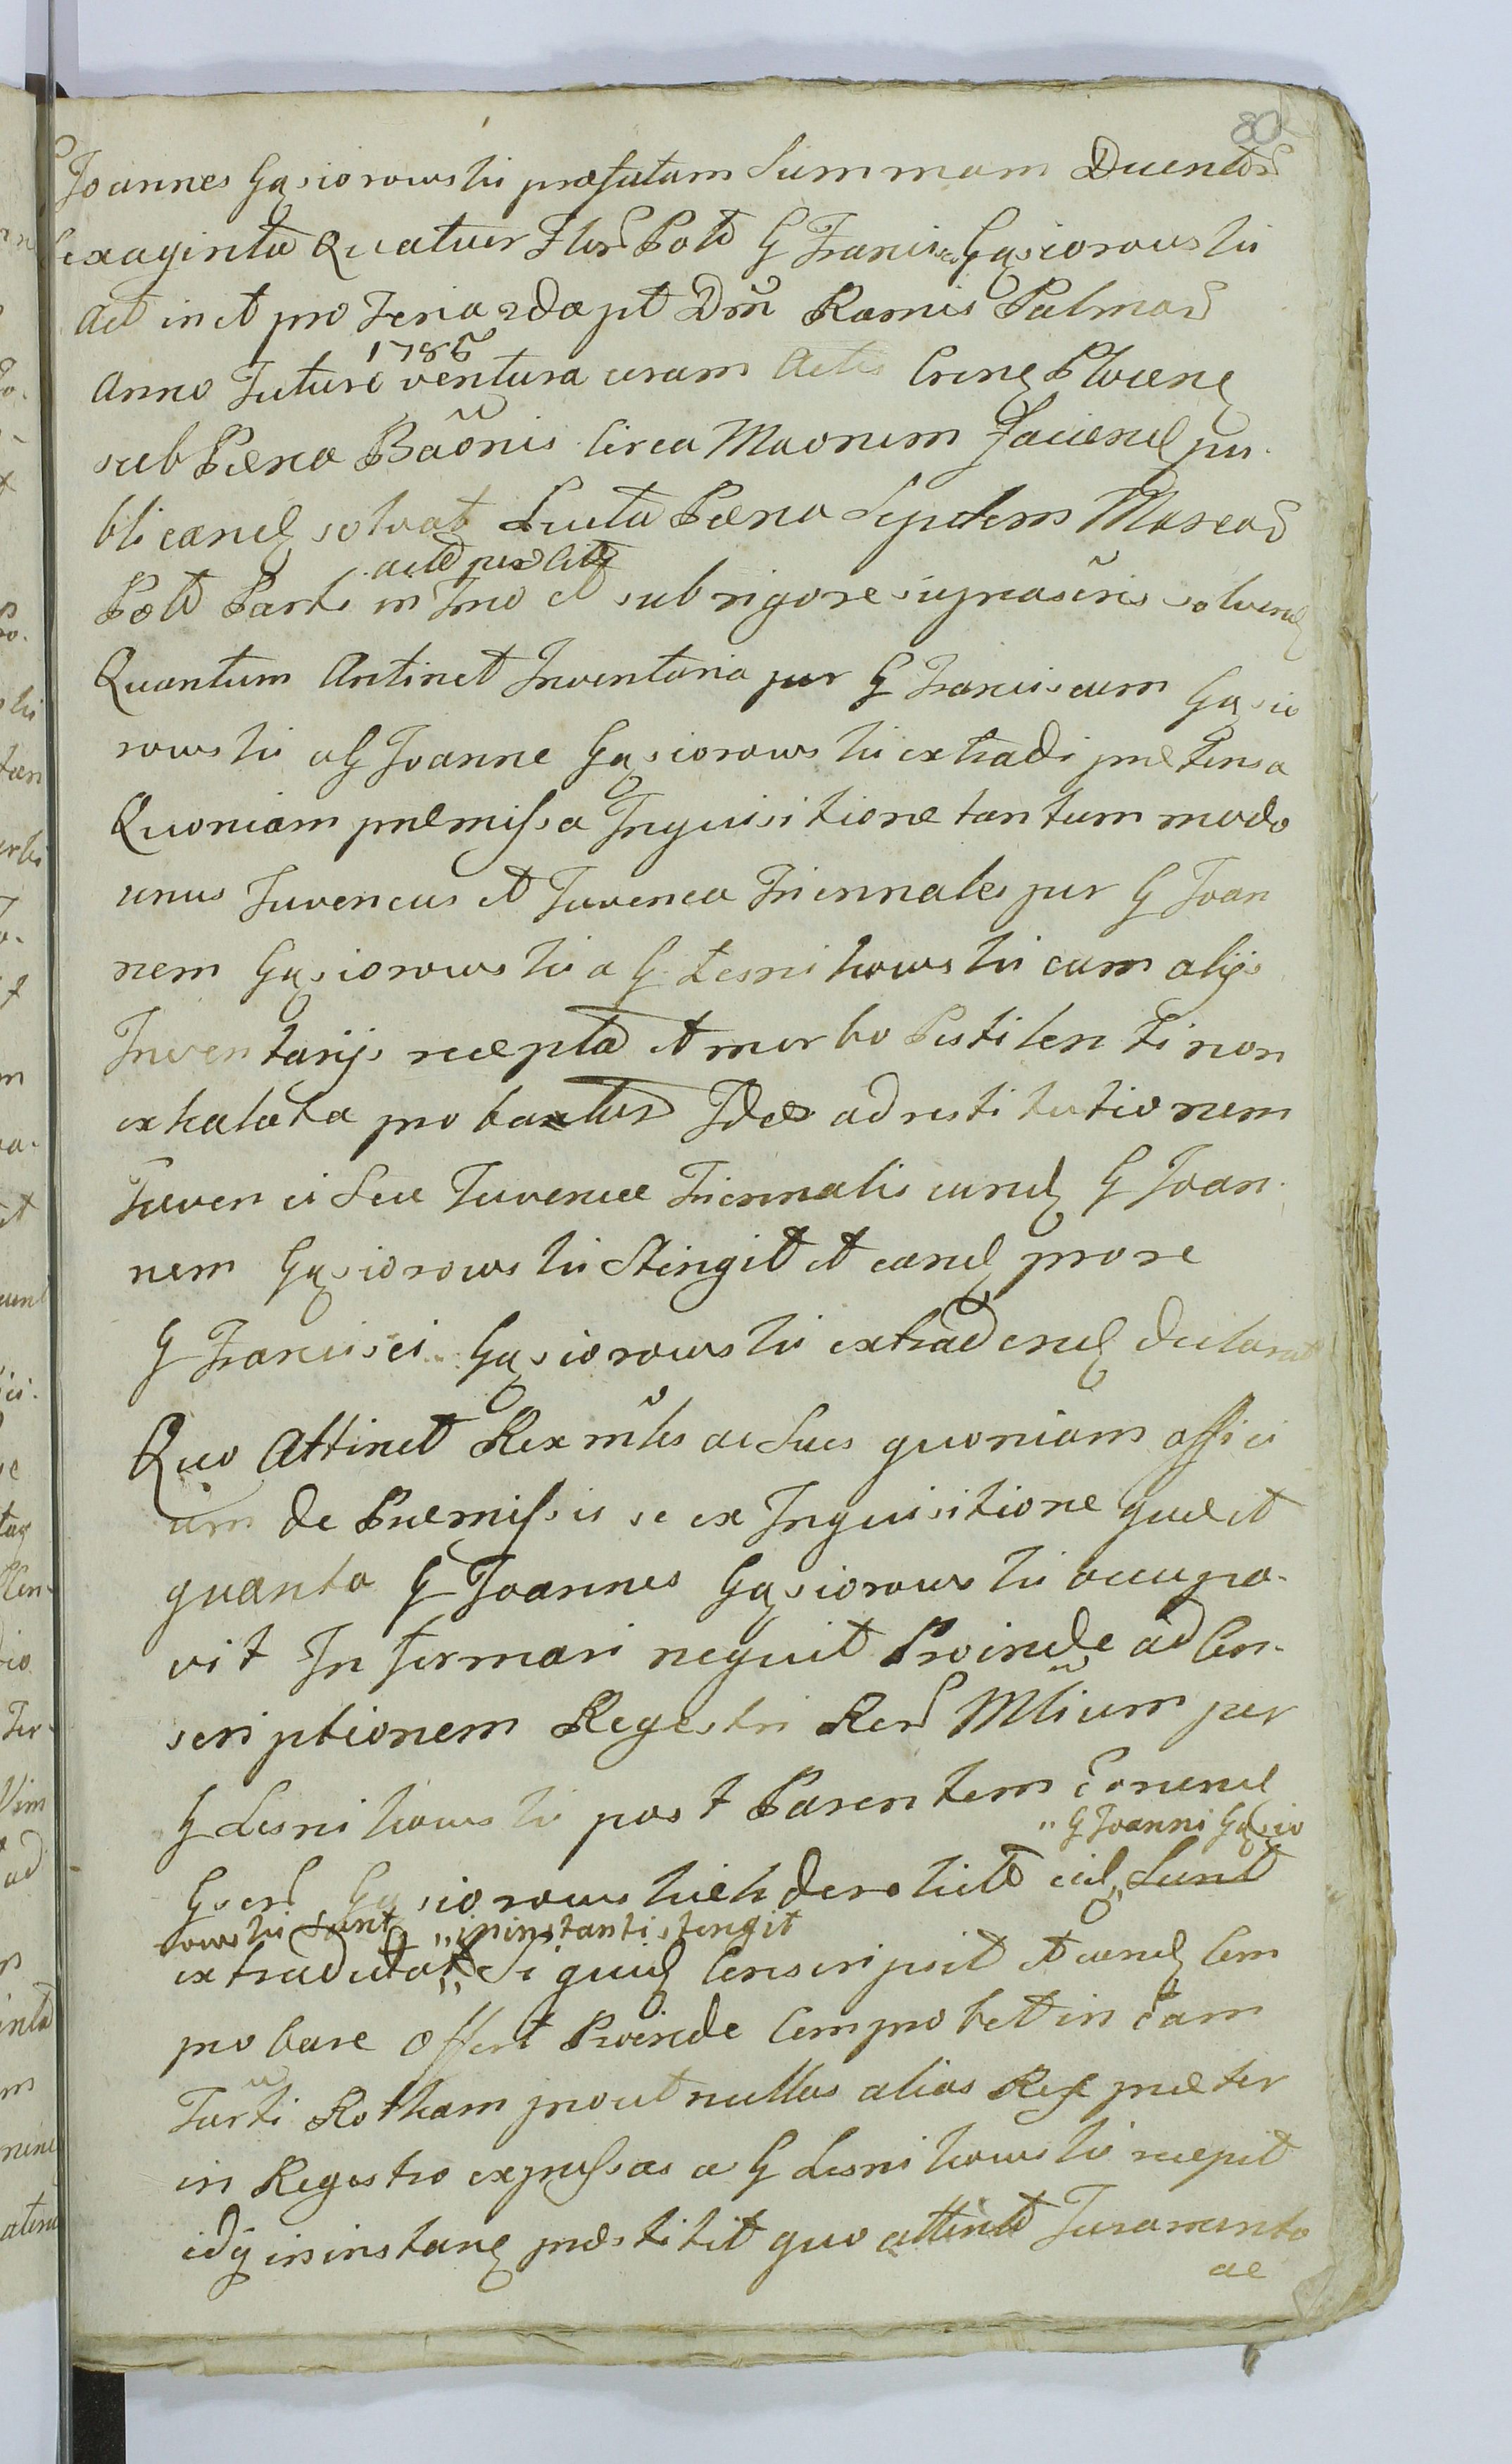 80
Joannes Gąsiorowski præfatam Summam Ducentor
sexaginta Quatuor Flor Pol G Francisco Gąsiorowski
Act in et pro Feria 2da pt Dm Ramis Palmar
Anno Futuro 1786 ventura coram Actis Crens Plocens
sub Pæna Baõnis circa Maonum faciend pu-
blicand solvat Luita Pæna Septem Marcar
Pol Parti in Tno et sub rigore suprascris solvend
Quantum Attinet Inventaria per G Franciscum Gąsio
rowski a G Joanne Gąsiorowski extradi prætensa
Quoniam præmissa Inquisitione tantummodo
unus Juvencus et Juvenca Triennales per G Joan
nem Gąsiorowski a G Lesnikowski cum alijs
Inventarijs recepta et morbo Pestilenti non
exhalata probantur Ideo ad restitutionem
Juvenci seu Juvencæ Triennalis eund G Joan-
nem Gąsiorowski Stringit et eand pro re
G Francisci Gąsiorowski extradend declarat
Quo Attinet Res mbles ac Sues quoniam offici
um de Præmissis se ex Inquisitione quæ et
quanta G Joannes Gąsiorowski occupa-
vit Informari nequit Proinde ad Con-
scriptionem Regestri Rer Mbilium per
G Lesnikowski post Parentem eorund
Gser Gąsiorowskich derelict eid Sunt
" G Joanni Gąsio
rowski Sunt " in instanti stringit
extradita " Siquid conscripsit et eund Com
probare offert Proinde Comprobet in eam
Jurti Rotham prout nullas alias Res præter
in Regestro expressas a G Lesnikowski recepit
idq in instanti præstitit quo attinet Juramento
ac